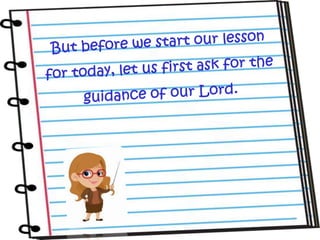 But before we start our lesson
for today, let us first ask for the
guidance of our Lord.